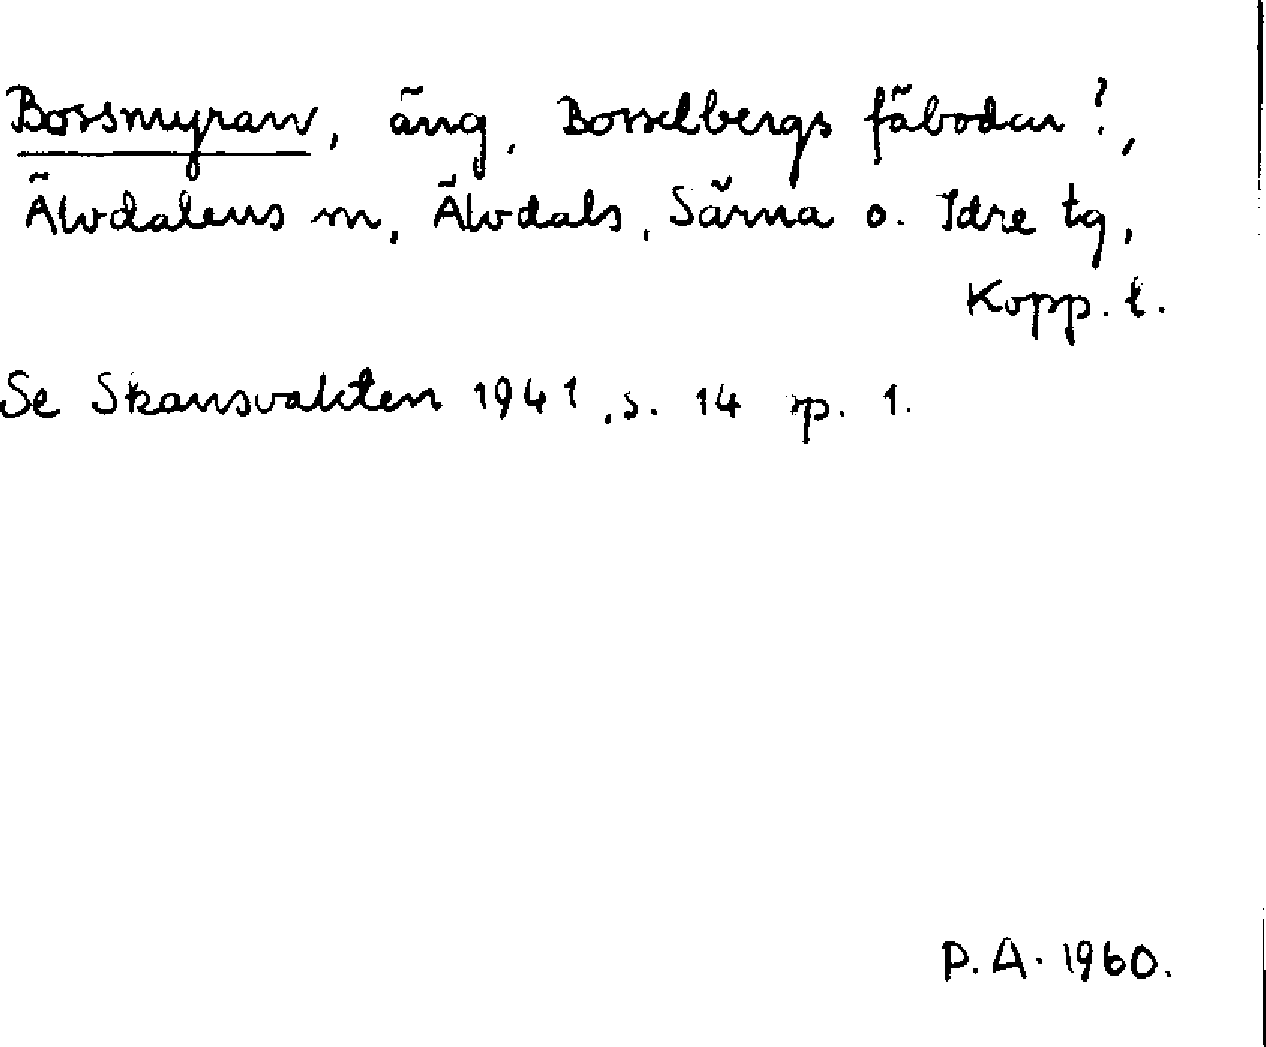 Bossmyran, äng, Bosselbergs fäbodar?,
Älvdalens sn, Älvdals, Särna o. Idre tg,
Kopp. l.
Se Skansvakten 1941, s. 14 sp. 1.
P.A. 1960.